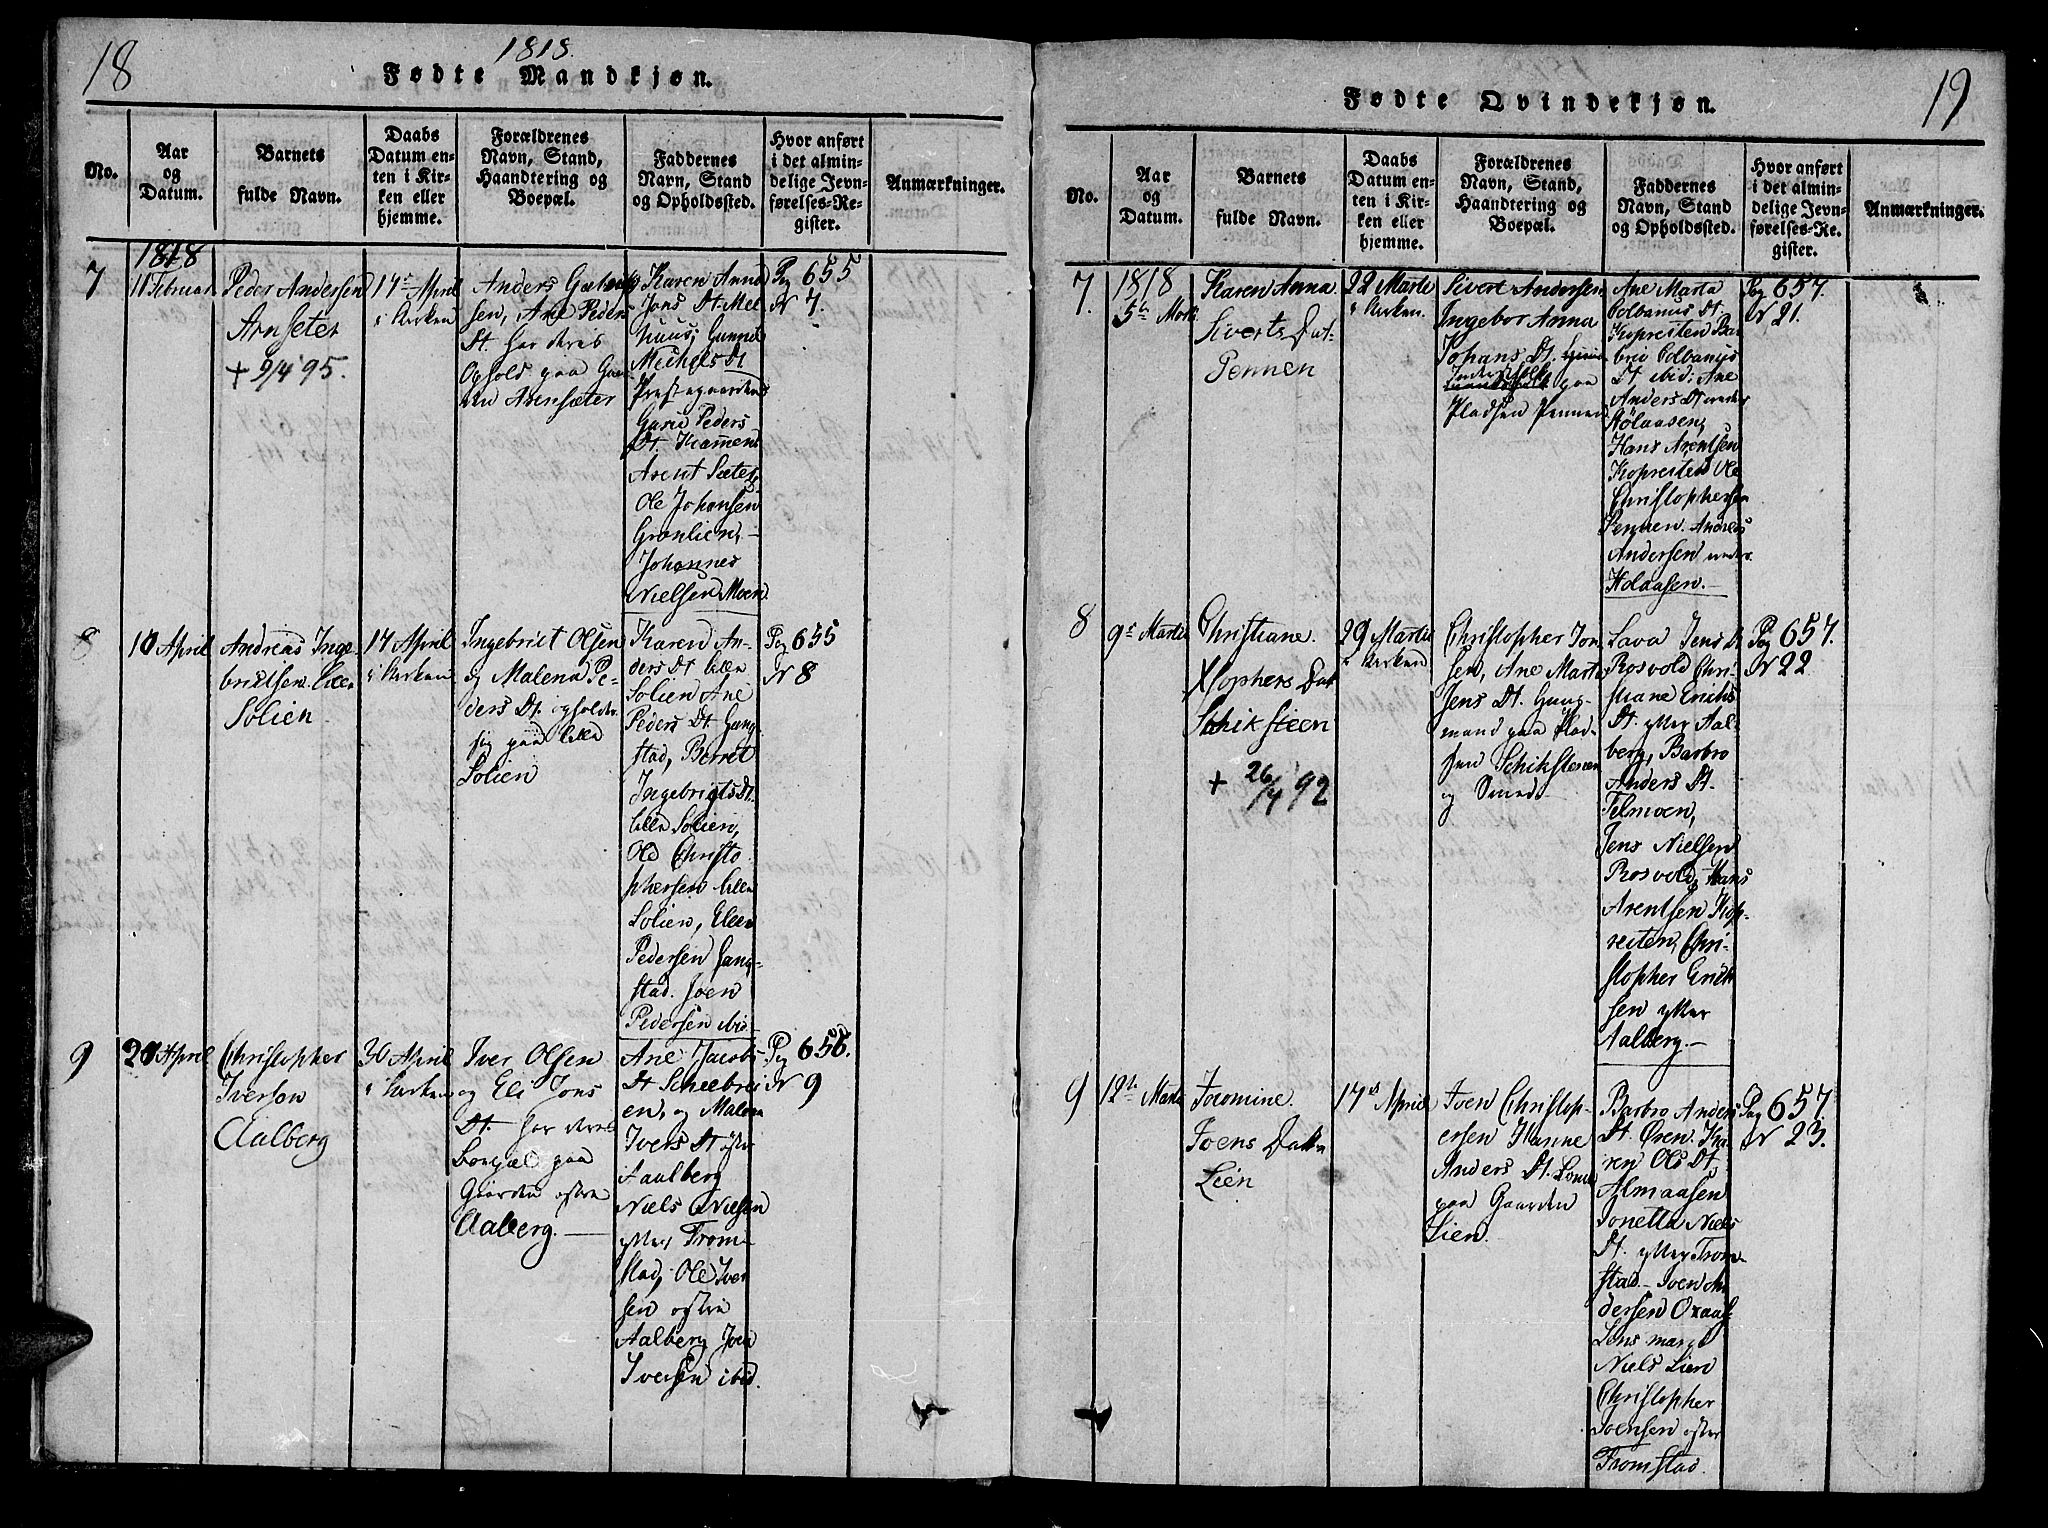 18
1818.
Fødte Mandkjøn.
No.
Aar
og
Datum.
Barnets
fulde Navn.
Daabs
Datum en-
ten i Kir-
ken eller
hjemme.
Forældrenes
Navn, Stand,
Haandtering og
Boepæl.
Faddernes
Navn, Stand
og Opholdssted.
Hvor anført
i det almin-
delige Jevn-
førelses-Re-
gister.
Anmærkninger.
7
1818
11 Februar
Peder Andersen
Arnseter
+ 9/4 95.
17de April
i Kirken
Anders
sen, Ane Peders
Dt. har deres
Ophold paa Gaar
den Arensæter
Karen Anna
Jons Dt Mel
huus; Gunnel
Michels Dt
Prestegaarden
Guru Peders
Dt. Kammen
Arent Sæter,
Ole Johansen
Grønlien,
Johannes
Nielsen Moen.
Pag 655
Nr 7.
8
10 April
Andreas Inge-
brigtsen lille
Solien
17 April
i Kirken
Ingebrigt Olsen
og Malena Pe-
ders Dt. opholder
sig paa lille
Solien
Karen An-
ders Dt lille
Solien Ane
Peders Dt. Gang-
stad, Berret
Ingebrigts Dt.
lille Solien,
Ole Christo
phersen lille
Solien, Elen
Pedersen Gang-
stad. Joen
Pedersen ibid.
Pag 655
Nr 8
9
20 April
Christopher
Iverson
Aalberg
30 April
i Kirken
Iver Olsen
og Eli Jons
Dt. har deres
Boepæl paa
Gaarden østre
Aalberg.
Ane Jacobs-
Dt Scheebrei
en, og Malena
Ivers Dt østre
Aaalberg
Niels Nielsen
ytter Trom
stad, Ole Iver
sen østre
Aalberg Joen
Iversen ibid.
Pag 656.
Nr 9
19
Fødte Qvindekjøn.
No.
Aar
og
Datum.
Barnets
fulde Navn.
Daabs
Datum en-
ten i Kir-
ken eller
hjemme.
Forældrenes
Navn, Stand,
Haandtering og
Boepæl.
Faddernes
Navn, Stand
og Opholdssted.
Hvor anført
i det almin-
delige Jevn-
førelses-Re-
gister.
Anmærkninger.
7.
1818
5te Marti
Karen Anna
Siverts Dat-
Pennen
22 Martii
i Kirken.
Sivert Andersen
Ingebor Anna
Johans Dt.
Inderstfolk paa
Pladsen Pennen
Ane Marta
Colbanus Dt.
Kopreiten Bar
bro Colbanus
Dt ibid; Ane
Anders Dt neder
Hølaasen,
Hans Arentsen
Kopreiten Ole
Christophersen
Pennen. Andreas
Andersen neder
Holaasen.
Pag 657.
Nr 21.
8
9de Martii
Christiane.
Xstophers Dat
Schiksteen
+ 26/4 92
29 Martii
i Kirken
Christopher Jon
sen, Ane Marta
Jens Dt. Huus-
mand paa Plad-
sen Schiksteen
og Smed.
Lava Jens Dt
Rosvold Chri-
stiane Erichs
Dt. ytter Aal-
berg, Barbro
Anders Dt.
Tilmoen,
Jens Nielsen
Rosvold, Hans
Arentsen Kop-
reiten, Chri-
stopher Erich
sen ytter
Aalberg.
Pag 657.
Nr 22
9
12te Martii
Joromine.
Joens Datr
Lien
17de April
Joen Christop-
ersen Hanne
Anders Dt. boende
paa Gaarden
Lien.
Barbro Anders
Dt. Øren. Ka
ren Ols Dt.
Almaasen
Jonetta Niels
Dt. ytter Trom
stad. Joen An
dersen Oxaal
Lens mand
Niels Lien
Christopher
Joensen øster
Tromstad.
Pag 657.
Nr 23.